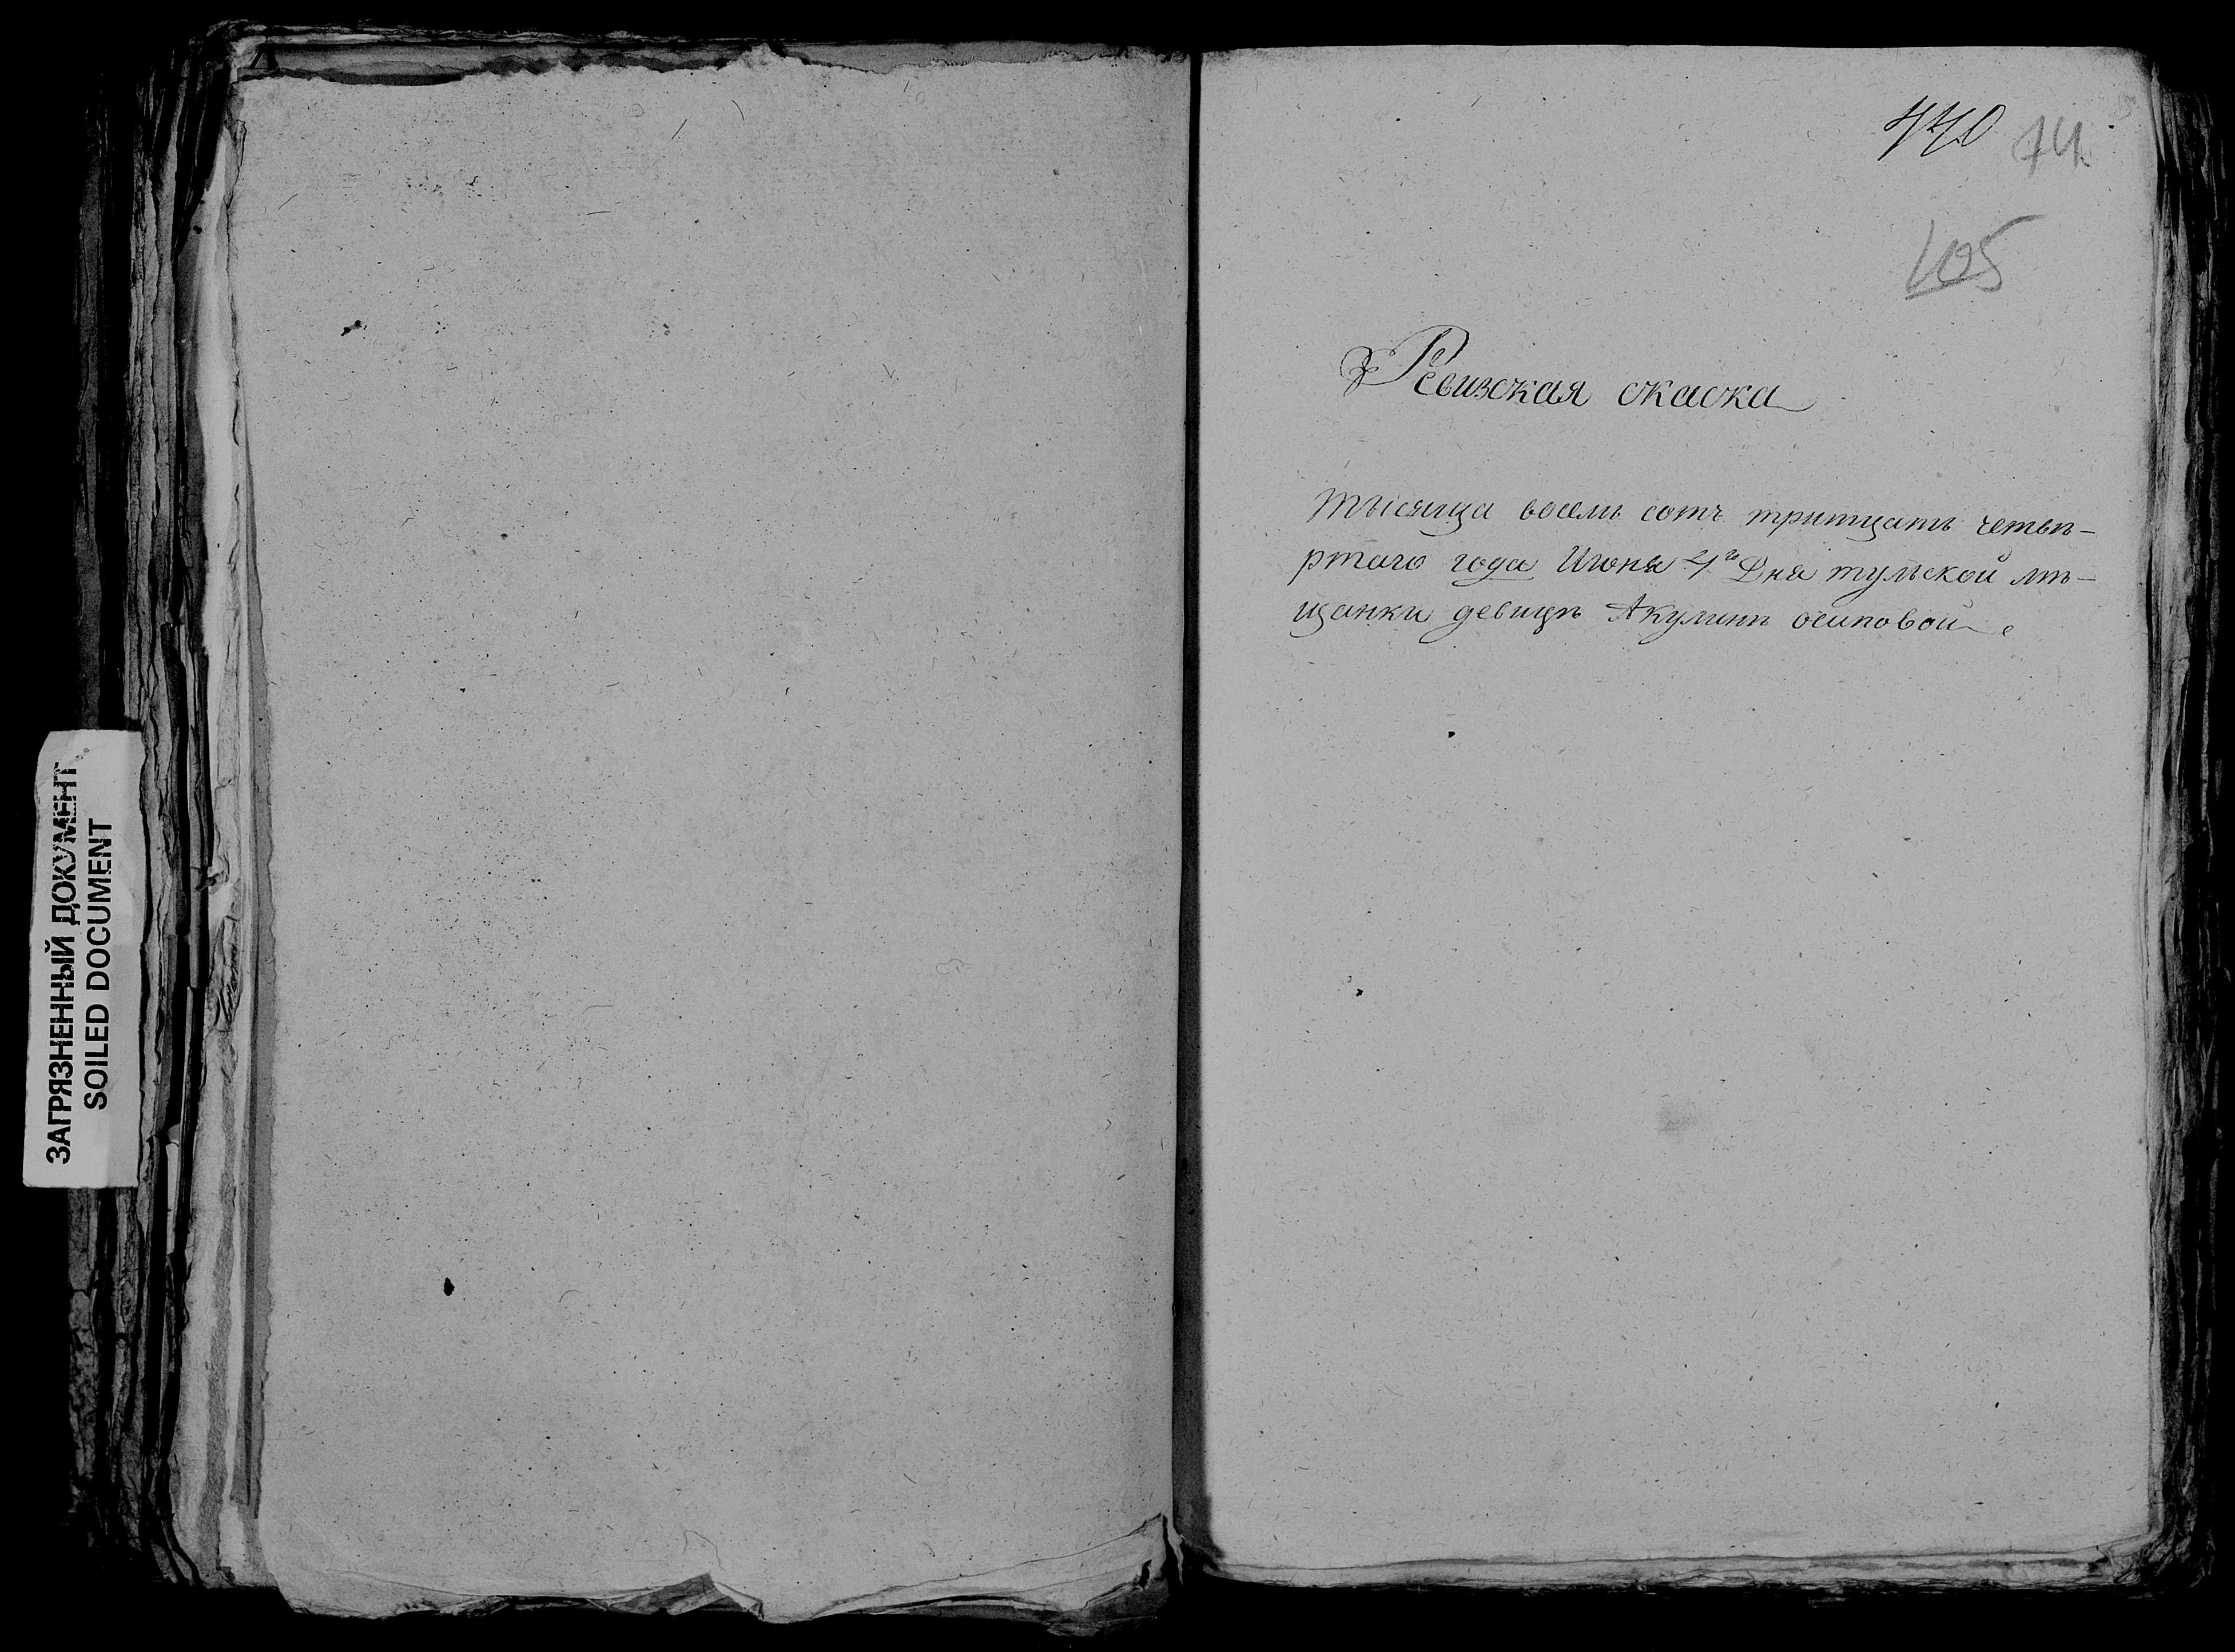 ЗАГРЯЗНЕННЫЙ ДОКУМЕНТ
SOILED DOCUMENT
440 74
105
Ревизкая скаска
тысяща восемь сотъ тритцать четвѣ-
ртаго года Июня 4го Дня тульской мѣ-
щанки девицѣ Акулинѣ осиповой